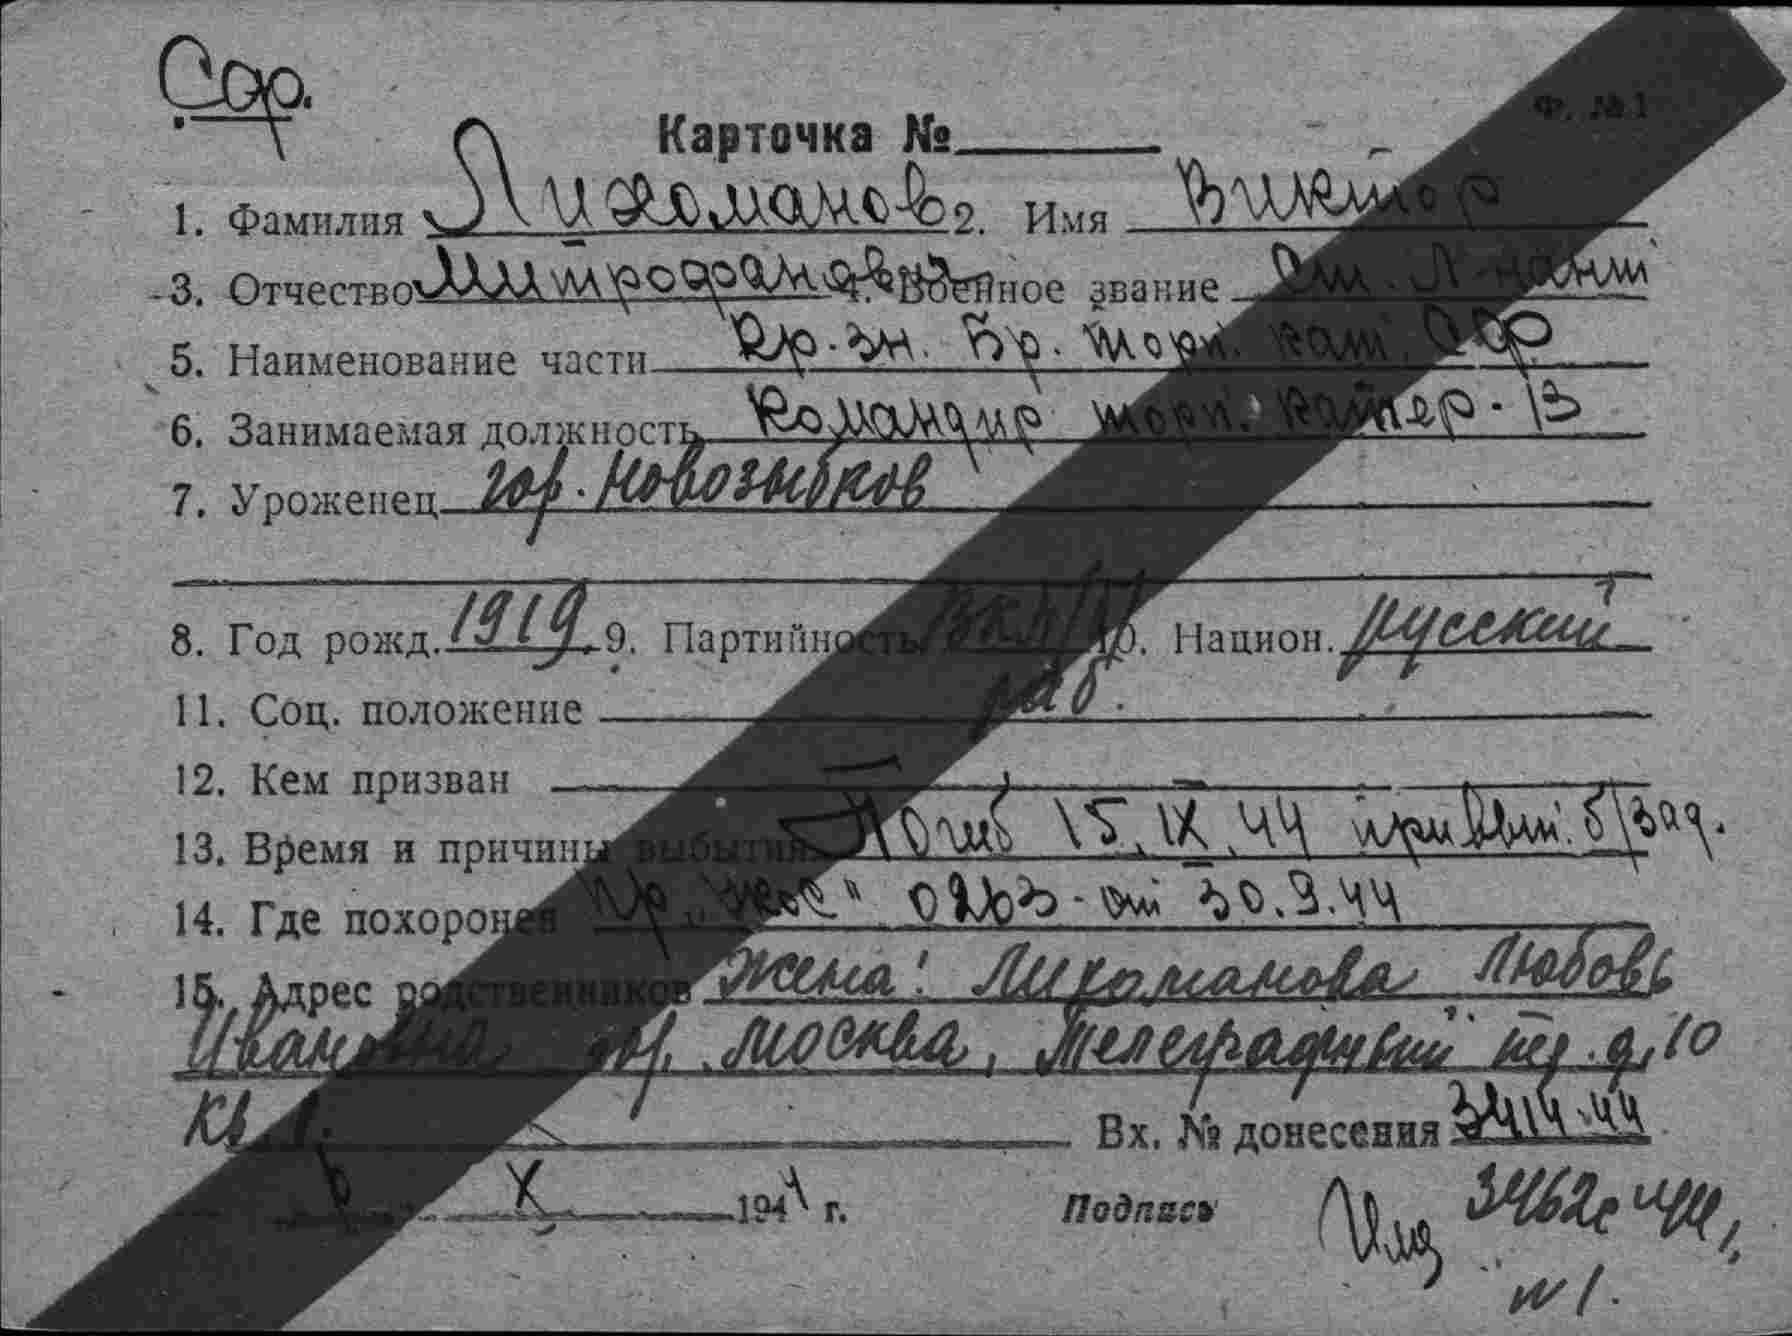 Сф.
Ф. № 1
Карточка №
1. Фамилия Лихоманов 2. Имя Виктор
3. Отчество Митрофанович 4. Военное звание Ст. Л-нант
5. Наименование части Кр. зн. Бр. торп. кат. СФ
6. Занимаемая должность Командир торп. катер-13
7. Уроженец гор. Новозыбков
8. Год рожд. 1919. 9. Партийность ВКП/б/ 10. Национ. русский
11. Соц. положение раб.
12. Кем призван
13. Время и причины выбытия Погиб 15.IX.44 при вып. б/зад.
14. Где похоронен Пр „НКОС" 0263-от 30.9.44
15. Адрес родственников Жена: Лихоманова Любовь
Ивановна гор. Москва, Телеграфный пер. д. 10
кв. 1.
Вх. № донесения 3414-44
6 X 1944 г. Подпись
3462с
№ 1.